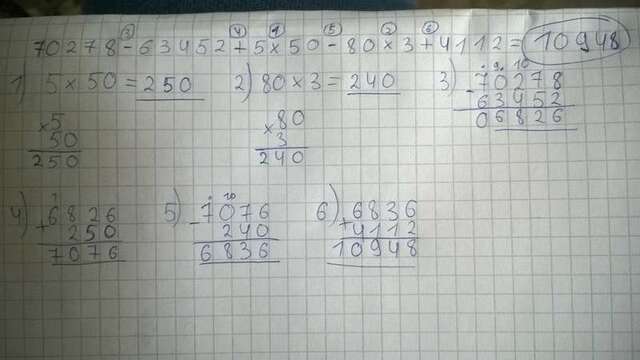 ③ ④ ① ⑤ ② ⑥
70278-63452+5×50-80×3+4112=10948
1) 5×50=250 2) 80×3=240 3) 70278
9 10
- 63452
06826
×5
50
250
×80
3
240
4) 6826
+ 250
7076
5) 7076
10
- 240
6836
6) 6836
+ 4112
10948